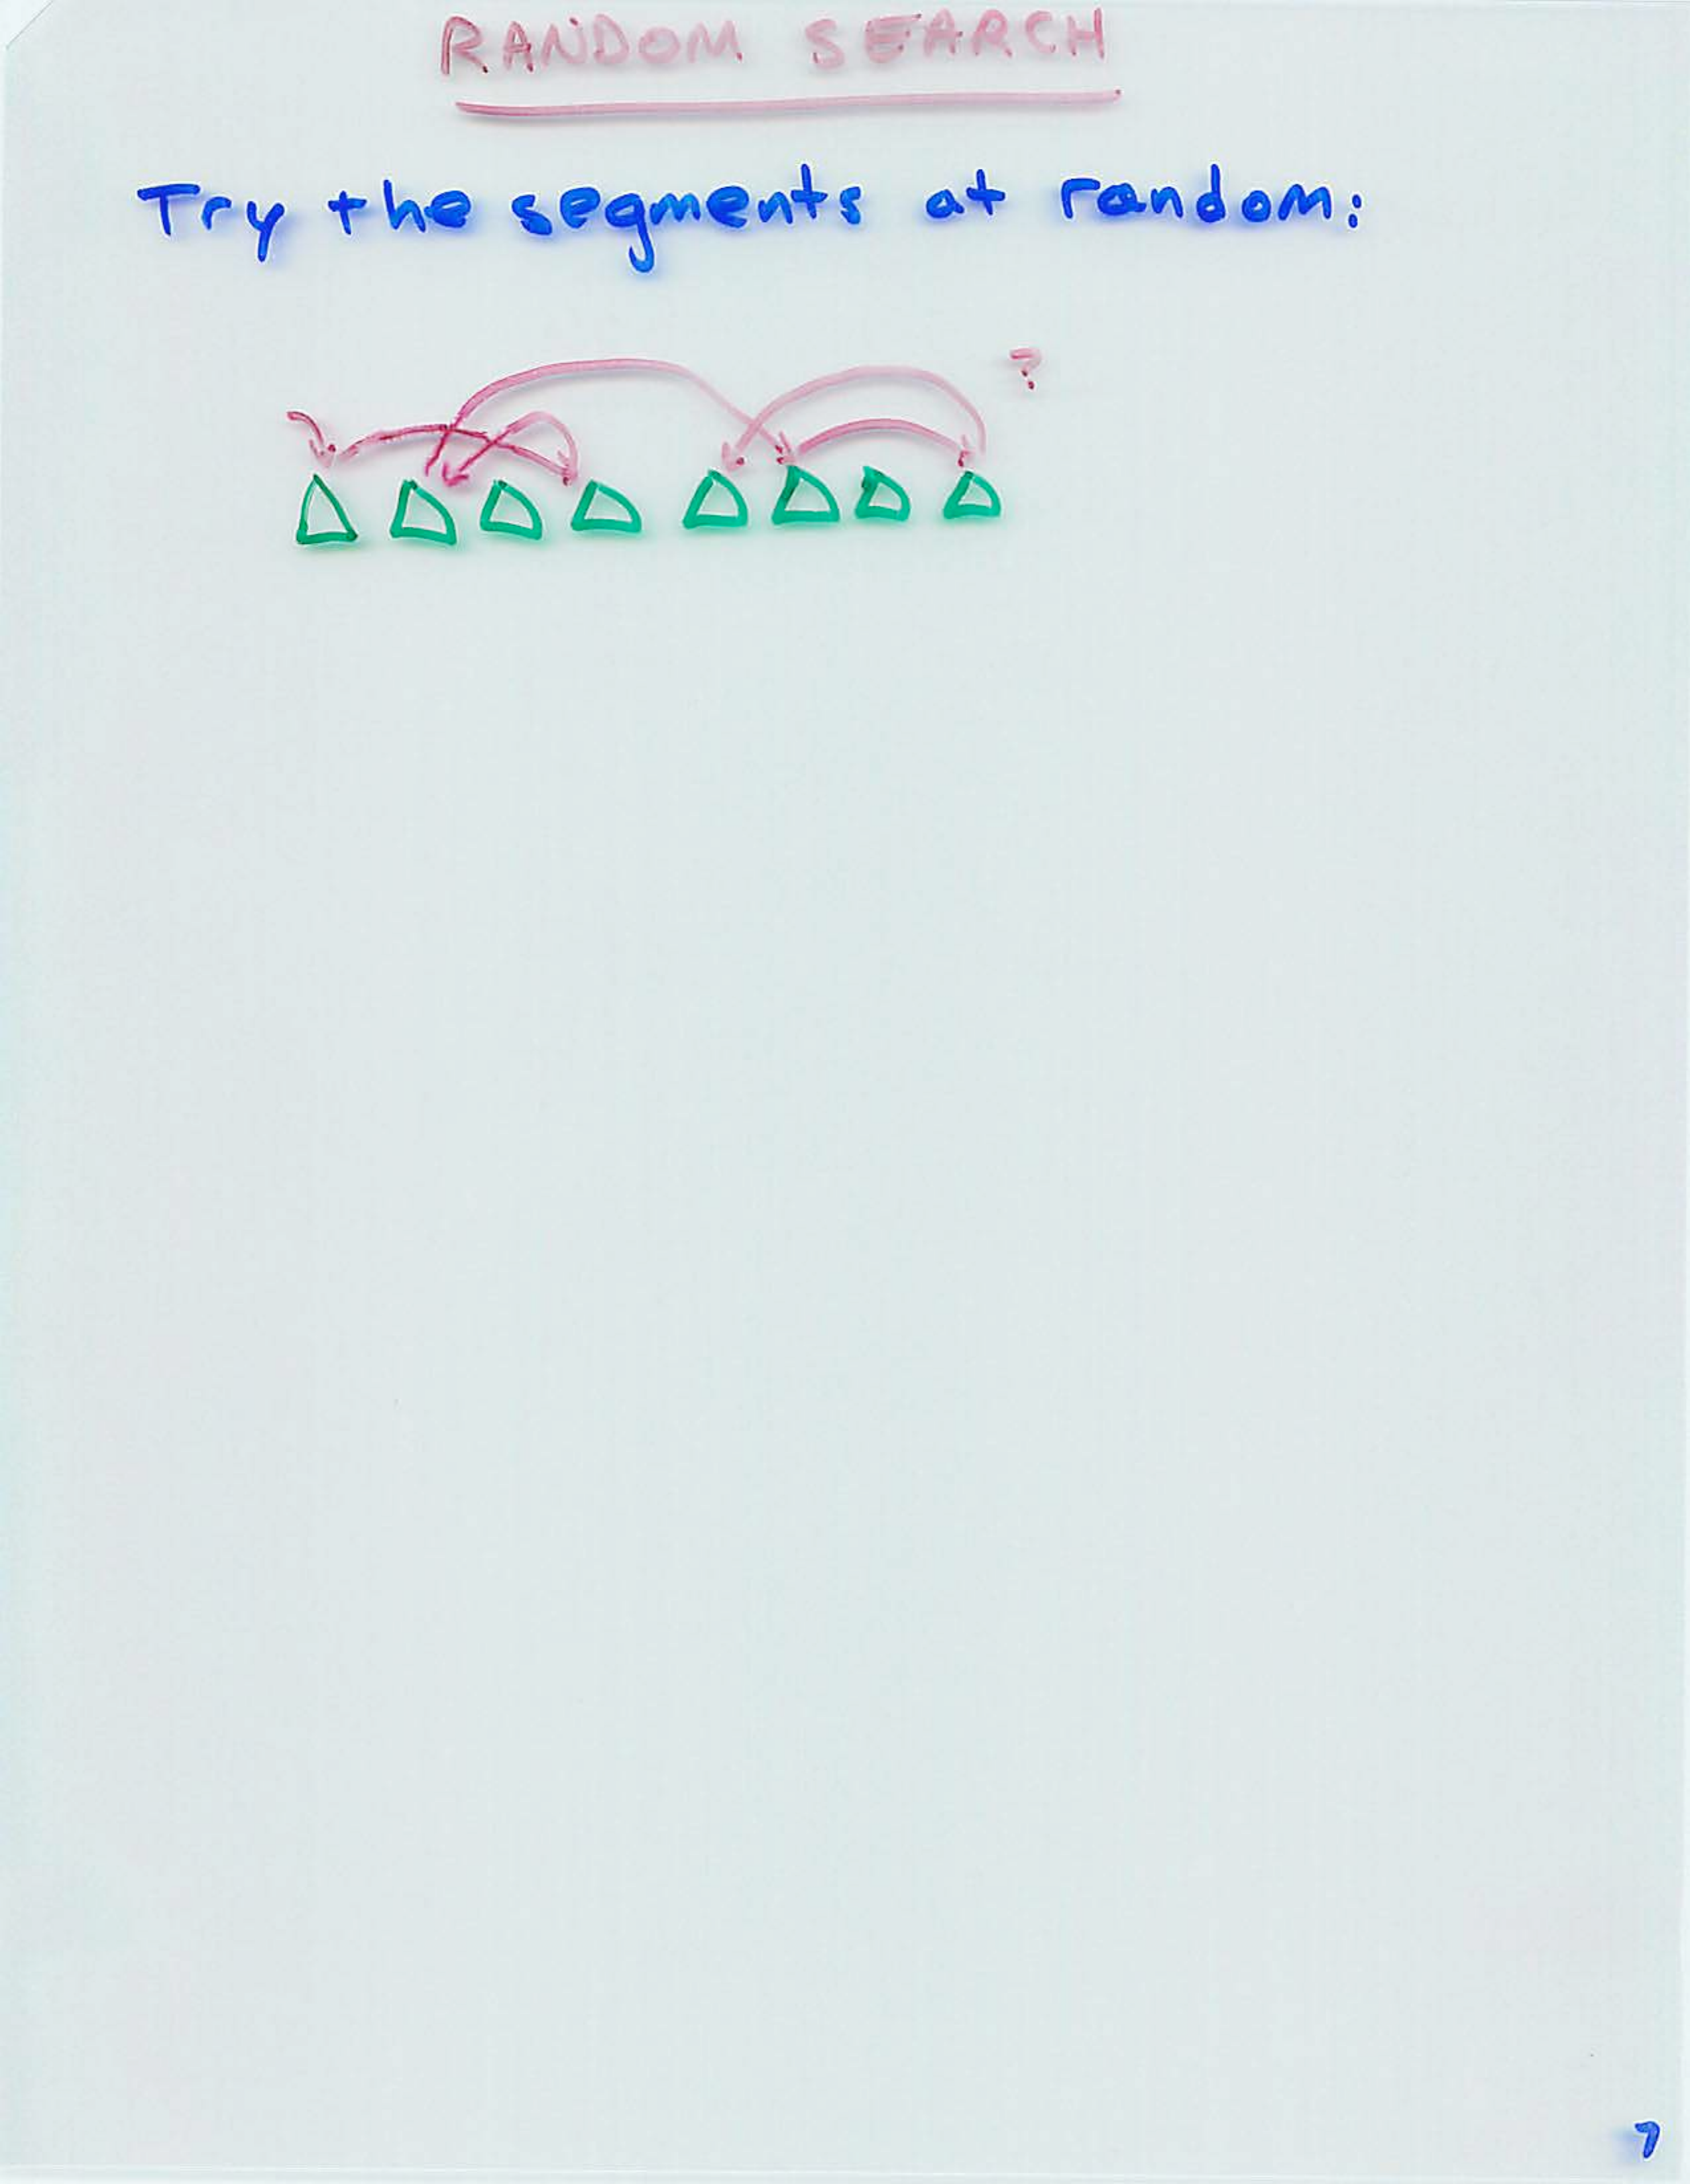 RANDOM SEARCH
Try the segments at random:
?
7